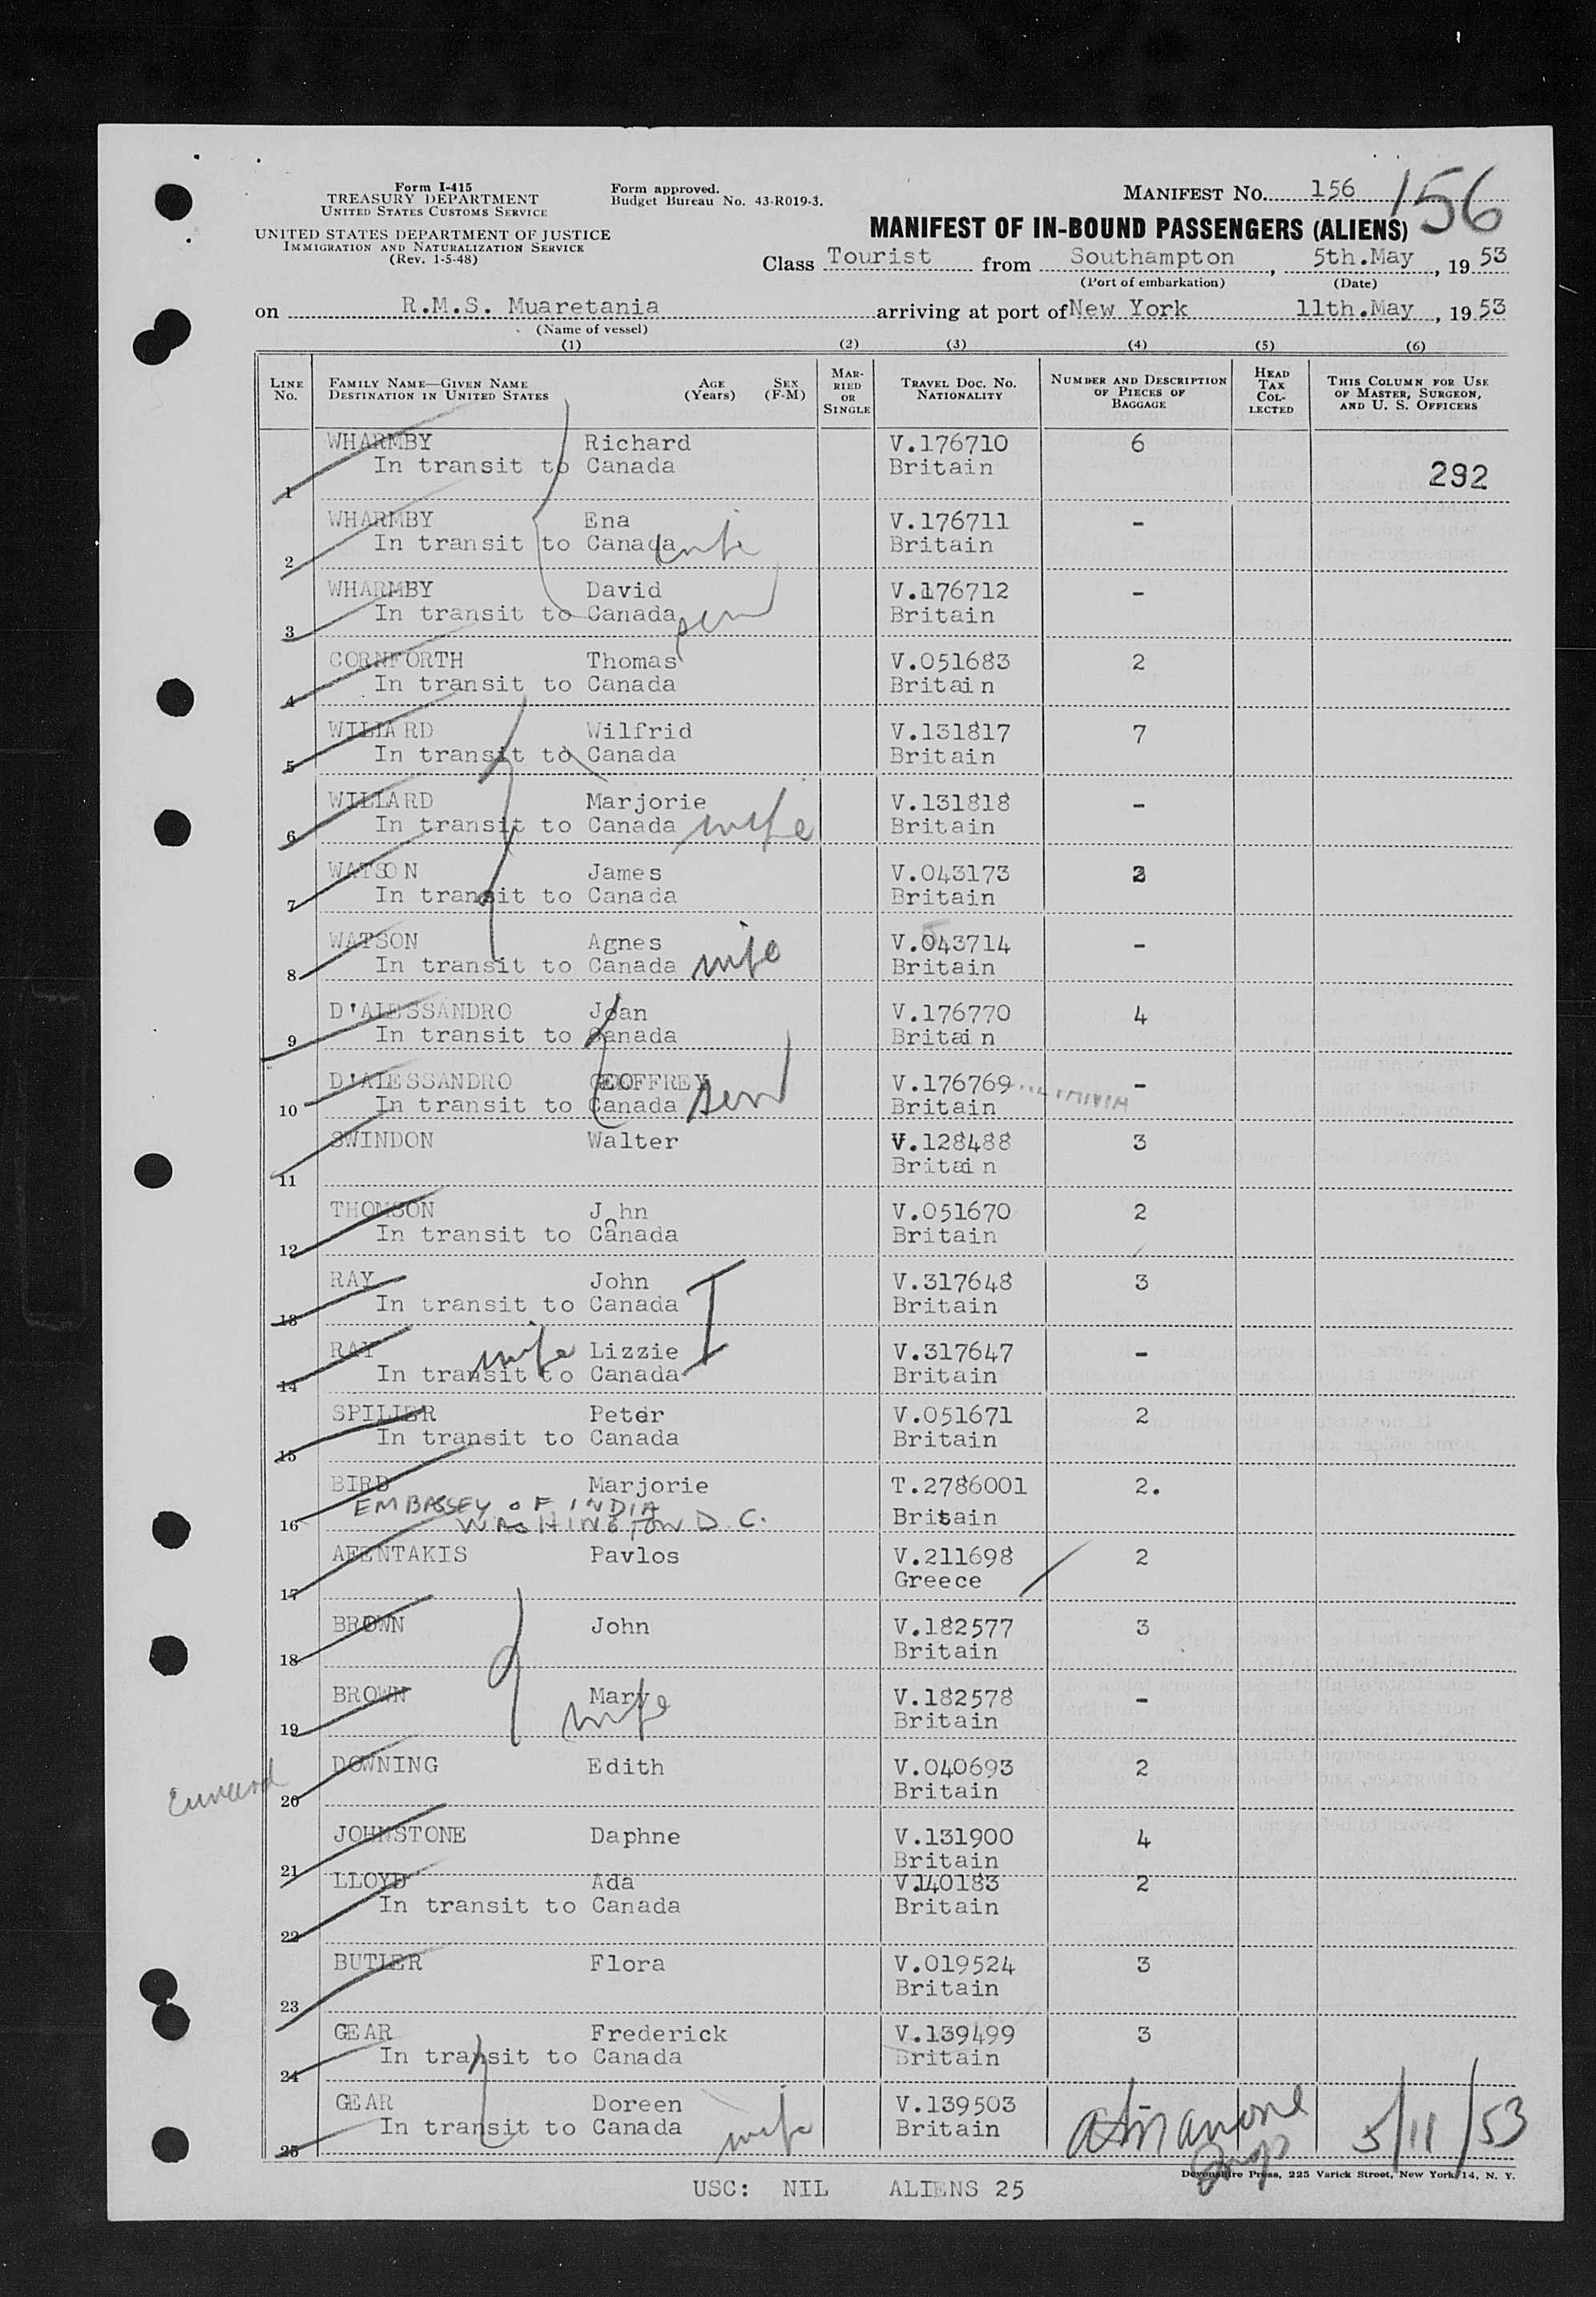 Form I-415
TREASURY DEPARTMENT
UNITED STATES CUSTOMS SERVICE
UNITED STATES DEPARTMENT OF JUSTICE
IMMIGRATION AND NATURALIZATION SERVICE
(Rev. 1-5-48)
Form approved.
Budget Bureau No. 43-R019-3.
MANIFEST NO. 156 156
MANIFEST OF IN-BOUND PASSENGERS (ALIENS)
Class Tourist from Southampton, 5th.May, 19 53
(Port of embarkation) (Date)
on R.M.S. Muaretania arriving at port of New York 11th.May, 19 53
(Name of vessel)
(1) (2) (3) (4) (5) (6)
LINE NO. FAMILY NAME—GIVEN NAME DESTINATION IN UNITED STATES AGE (Years) SEX (F-M) MARRIED OR SINGLE TRAVEL DOC. NO. NATIONALITY NUMBER AND DESCRIPTION OF PIECES OF BAGGAGE HEAD TAX COLLECTED THIS COLUMN FOR USE OF MASTER, SURGEON, AND U. S. OFFICERS
WHARMBY Richard V.176710 6
In transit to Canada Britain 292
1
WHARMBY Ena V.176711 -
In transit to Canada wife Britain
2
WHARMBY David V.176712 -
In transit to Canada son Britain
3
CORNFORTH Thomas V.051683 2
4 In transit to Canada Britain
WILLARD Wilfrid V.131817 7
5 In transit to Canada Britain
WILLARD Marjorie V.131818 -
6 In transit to Canada wife Britain
WATSON James V.043173
7 In transit to Canada Britain
WATSON Agnes V.043714 -
8 In transit to Canada wife Britain
D'ALESSANDRO Joan V.176770 4
9 In transit to Canada Britain
D'ALESSANDRO GEOFFREY V.176769 -
10 In transit to Canada son Britain
SWINDON Walter V.128488 3
Britain
11
THOMSON John V.051670 2
12 In transit to Canada Britain
RAY John V.317648 3
13 In transit to Canada Britain
RAY wife Lizzie V.317647 -
14 In transit to Canada Britain
SPILLER Peter V.051671 2
15 In transit to Canada Britain
BIRD Marjorie T.2786001 2.
EMBASSEY OF INDIA
16 WASHINGTON D.C. Britain
AFENTAKIS Pavlos V.211698 2
17 Greece
BROWN John V.182577 3
18 Britain
BROWN Mary V.182578 -
19 wife Britain
DOWNING Edith V.040693 2
20 Britain
JOHNSTONE Daphne V.131900 4
21 Britain
LLOYD Ada V.140183 2
In transit to Canada Britain
22
BUTLER Flora V.019524 3
Britain
23
GEAR Frederick V.139499 3
24 In transit to Canada Britain
GEAR Doreen V.139503 -
25 In transit to Canada wife Britain 5/11/53
Devonshire Press, 225 Varick Street, New York 14, N. Y.
USC: NIL ALIENS 25